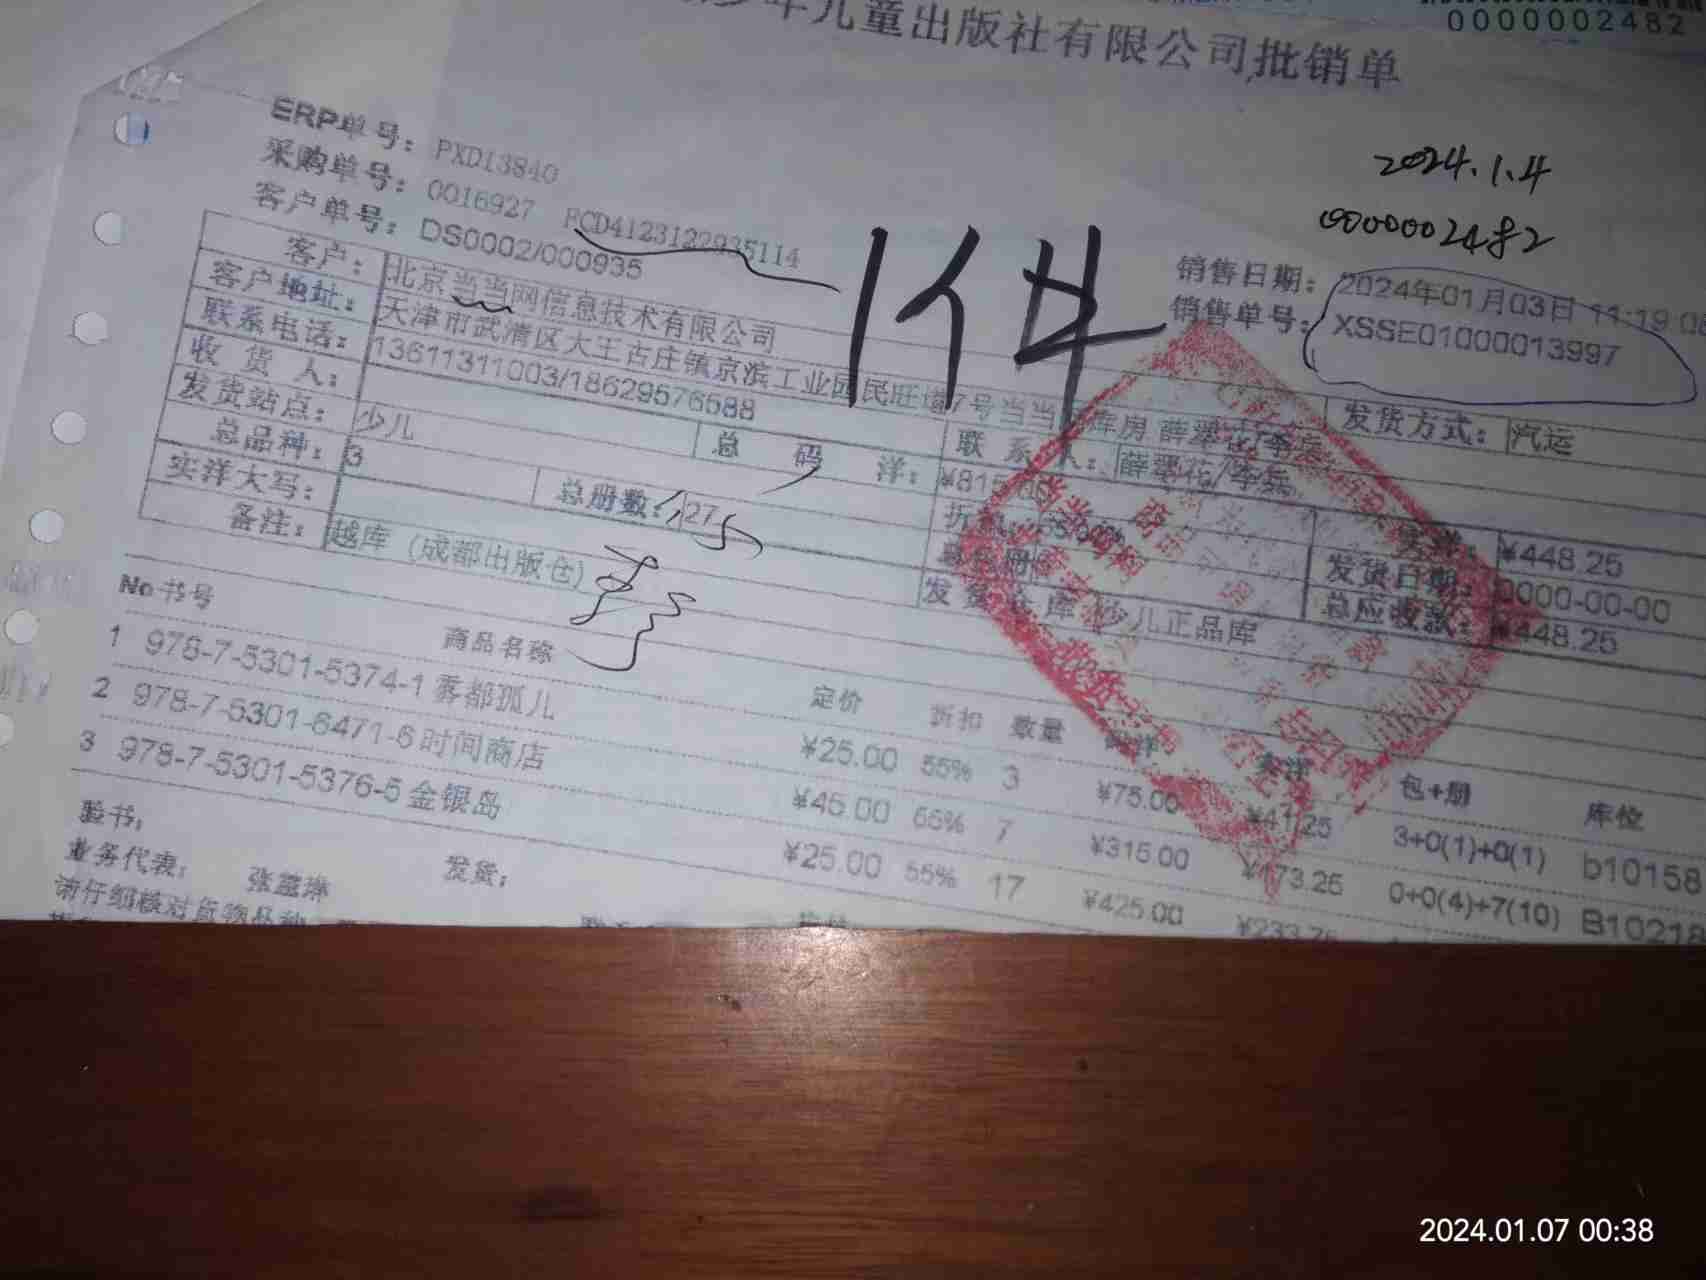 0000002482
少年儿童出版社有限公司批销单
2024.1.4
0000002482
ERP单号: PXD13840
采购单号: 0016927 PCD4123122935114
客户单号: DS0002/000935
1件
销售日期: 2024年01月03日 11:19:0
销售单号: XSSE01000013997
客户: 北京当当网信息技术有限公司
客户地址: 天津市武清区大王古庄镇京滨工业园民旺道7号当当 库房
发货方式: 汽运
联系电话: 13611311003/18629576588
联系人: 薛翠花/李兵
收货人:
发货站点: 少儿
总码洋: ¥815
¥448.25
总品种: 3
总册数: 27
发货日期: 0000-00-00
实洋大写:
总应收款: ¥448.25
备注: 越库（成都出版仓）
少儿正品库
No 书号 商品名称 定价 折扣 数量 码洋 实洋 包+册 库位
1 978-7-5301-5374-1 雾都孤儿 ¥25.00 55% 3 ¥75.00 ¥41.25 3+0(1)+0(1) b10158
2 978-7-5301-6471-6 时间商店 ¥45.00 55% 7 ¥315.00 ¥173.25 0+0(4)+7(10) B10218
3 978-7-5301-5376-5 金银岛 ¥25.00 55% 17 ¥425.00 ¥233.75
验书:
业务代表: 发货:
请仔细核对货物品种
2024.01.07 00:38